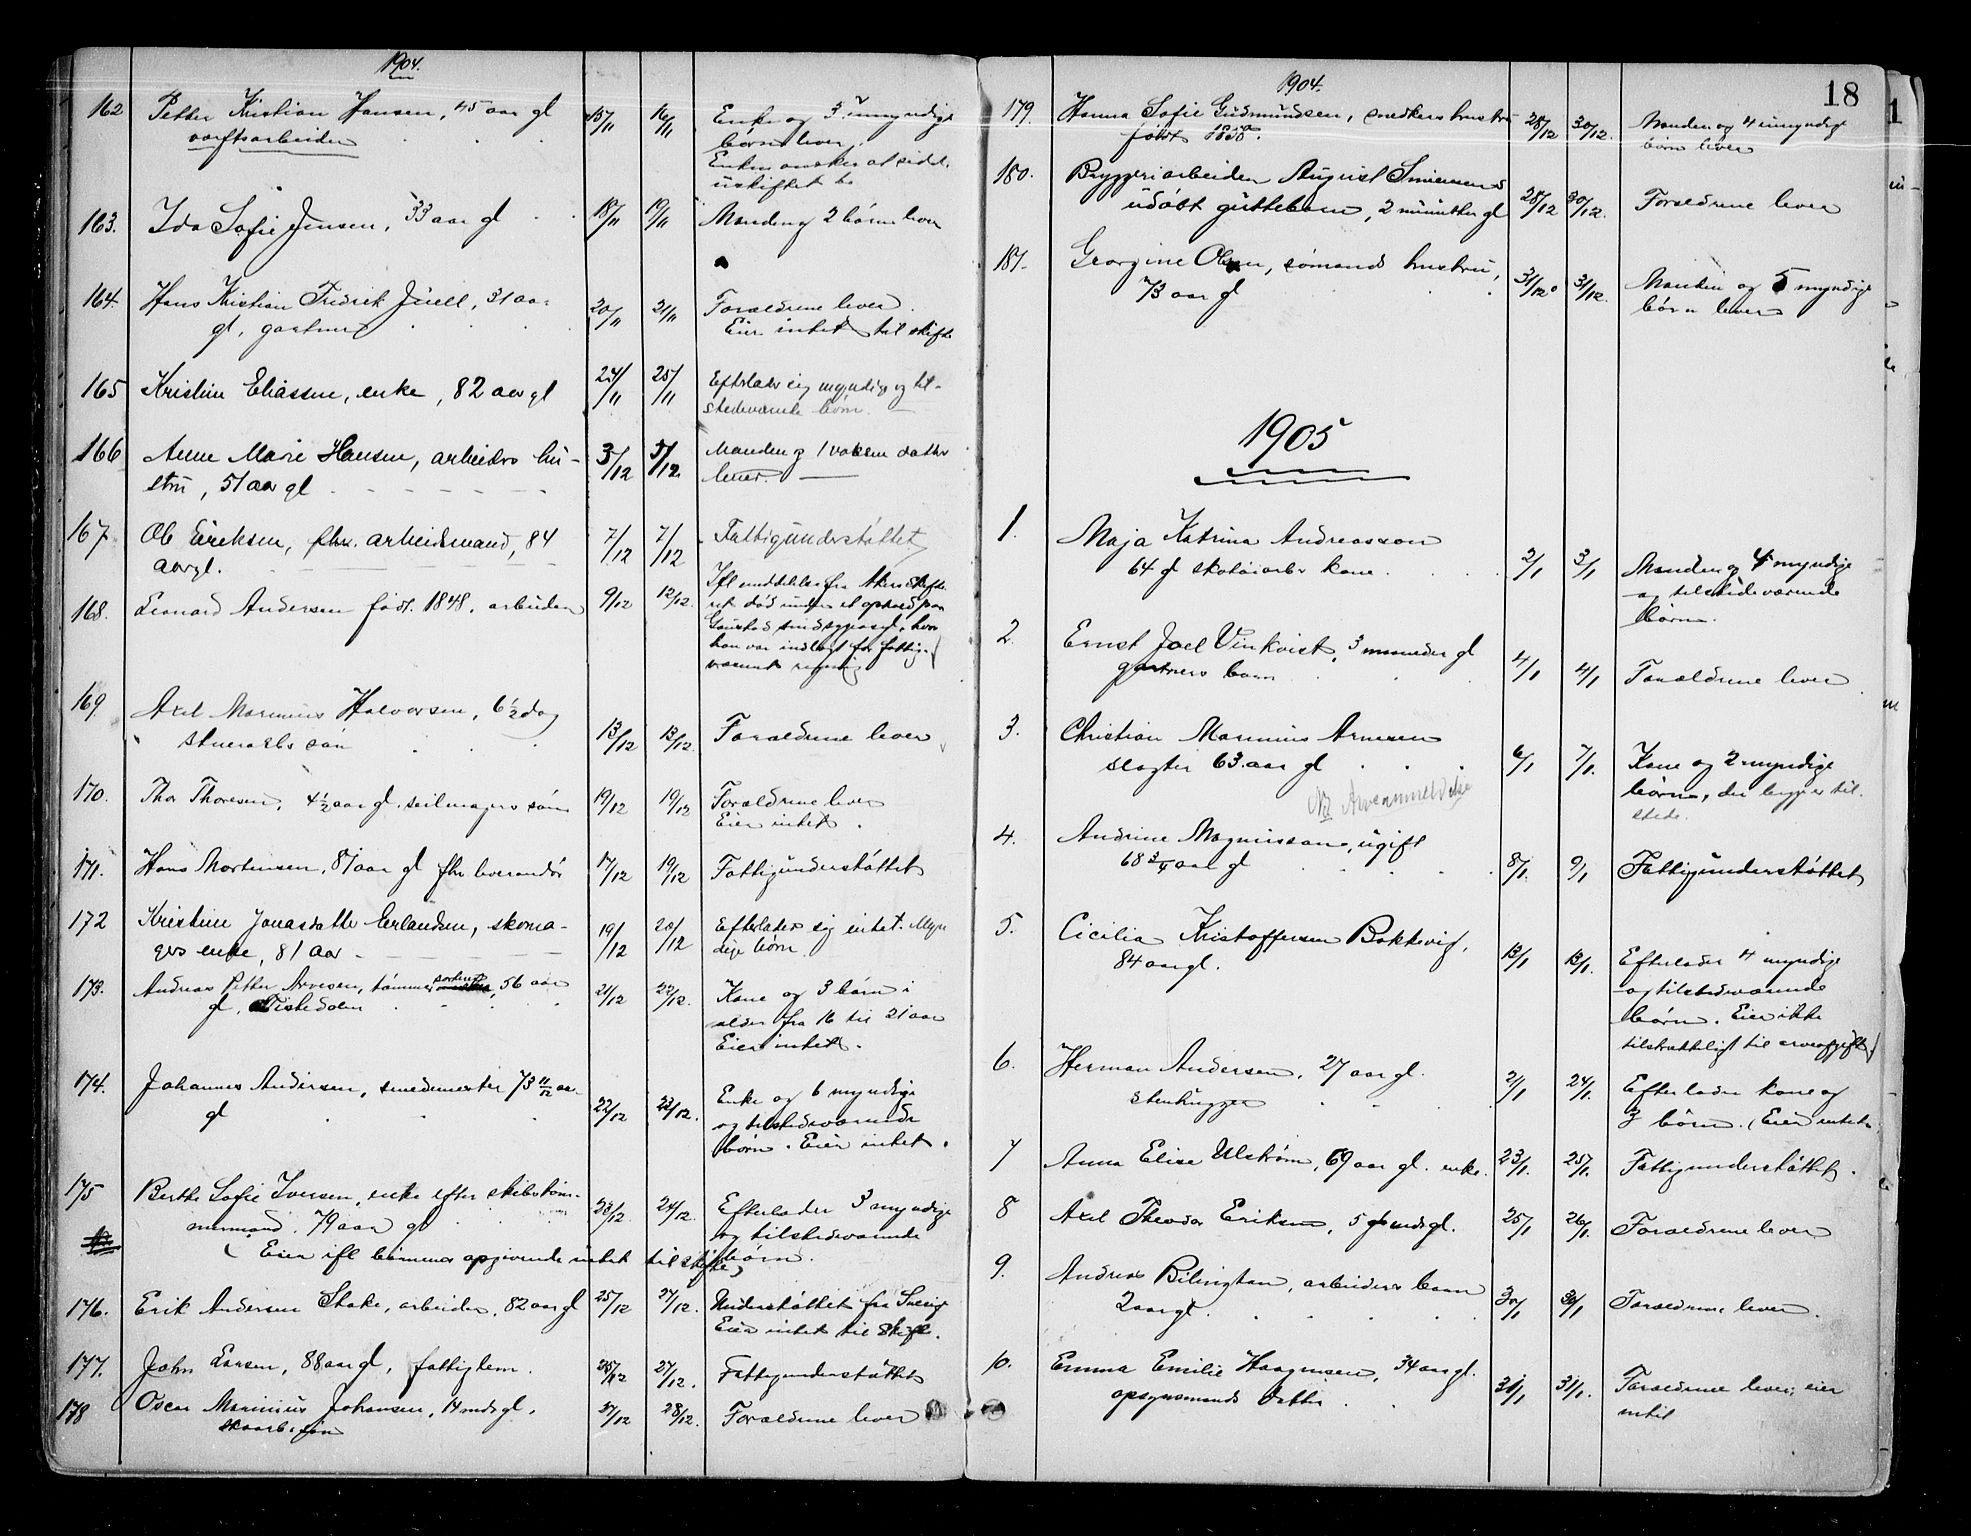 1904.
162 Petter Kristian Hansen, 45 aar gl 15/11 16/11 Enke og 3 umyndige
værftsarbeider børn lever.
Enken ønsker at sidde
i uskiftet bo
163. Ida Sofie Jensen, 33 aar gl 18/11 19/11 Manden og 2 børn lever
164. Hans Kristian Fredrik Juell, 31 aar 20/11 21/11 Forældrene lever
gl, gartner Eier intet til skifte
165 Kristine Eliassen, enke, 82 aar gl 24/11 25/11 Efterlader sig myndige og til-
stedeværende børn.
166 Anne Marie Hansen, arbeiders hu- 3/12 5/12 Manden og 1 voksen datter
stru, 51 aar gl lever.
167 Ole Eriksen, fhv. arbeidsmand, 84 7/12 7/12 Fattigunderstøttet
aar gl.
168. Leonard Andersen født 1848, arbeider 9/12 12/12. Ifl meddelelse fra Akers skifte-
ret død under et ophold paa
Gaustad sindsygeasyl, hvor
han var indlagt for fattig-
væsenets regning
169 Axel Marinius Halvorsen, 6½ dag 13/12 13/12. Forældrene lever
søn
170. Thor Thoresen, 4½ aar gl. seilmagers søn 19/12 19/12 Forældrene lever
Eier intet.
171. Hans Mortensen, 87 aar gl fhv leverandør 17/12 19/12 Fattigunderstøttet
172 Kristine Jonasdatter Erlandsen, skoma- 19/12 20/12 Efterlader sig intet. Myn
gers enke, 81 aar dige børn.
173. Andreas Petter Arvesen, tømmer 56 aar 21/12 22/12. Kone og 3 børn i
gl, Tistedalen alder fra 16 til 21 aar
Eier intet.
174. Johannes Andersen, smedemester 73 11/12 aar 22/12 23/12. Enke og 6 myndige
gl og tilstedeværende
børn. Eier intet.
175 Berthe Sofie Iversen, enke efter skibstøm- 23/12 24/12. Efterlader 3 myndige
mermand. 79 aar gl og tilstedeværende
(Eier ifl børnenes opgivende intet til skifte) børn.
176. Erik Andersen Stake, arbeider, 82 aar gl 25/12 27/12. Understøttet fra Sverige
Eier intet til skifte.
177. John Larsen, 88 aar gl, fattiglem. 25/12 27/12. Fattigunderstøttet
178 Oscar Marinius Johansen, 14 mdr gl, 27/12 28/12. Forældrene lever
skoarb. søn
18
1904.
179. Hanna Sofie Gudmundsen, snedkers hustru 28/12 30/12. Manden og 4 umyndige
født 1858. børn lever
180. Bryggeriarbeider August Simensens 28/12 30/12. Forældrene lever
udøbt guttebarn, 2 minutter gl
181. Georgine Olsen, sømands hustru, 31/12 31/12. Manden og 5 myndige
73 aar gl børn lever
1905
1. Maja Katrina Andreasson 2/1 3/1 Manden og 4 myndige
64 gl skotøiarb kone og tilstedeværende
børn.
2. Ernst Joel Vinkvist, 3 maaneder gl 4/1 4/1 Forældrene lever
gartners barn
3. Christian Marinius Arnesen 6/1 7/1. Kone og 2 myndige
slagter 63 aar gl børn, der begge er til
stede.
NB Arveanmeldelse
4. Andrine Magnussen, ugift 8/1. 9/1 Fattigunderstøttet
68 3/4 aar gl
5. Cicilia Kristoffersen Bakkevig, 13/1 13/1. Efterlader 4 myndige
84 aar gl. og tilstedeværende
børn. Eier ikke
tilstrækkeligt til arveafgift
6. Herman Andersen, 27 aar gl. 2/1 24/1. Efterlader kone og
stenhugger 3 børn. (Eier intet.
7 Anna Elise Ulstrøm, 69 aar gl. enke. 23/1. 25/1. Fattigunderstøttet.
8 Axel Theodor Eriksen, 5 mdr gl. 25/1 26/1. Forældrene lever
9. Andreas Bilington, arbeiders barn 30/1 30/1 Forældrene lever.
2 aar gl.
10. Emma Emilie Haagensen, 34 aar gl. 31/1 31/1. Forældrene lever, eier
opsynsmands datter intet